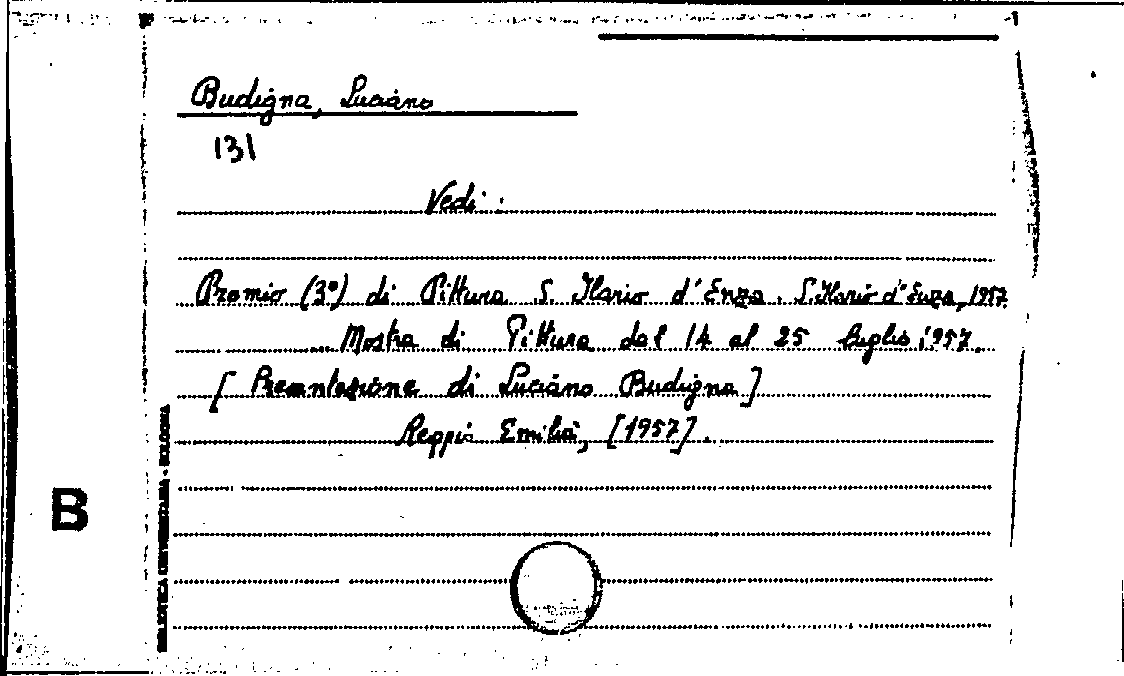 Budigna, Luciano
131
Vedi :
Premio (3º) di Pittura S. Ilario d'Enza. S. Ilario d'Enza, 1957.
Mostra di Pittura dal 14 al 25 luglio 1957.
[Presentazione di Luciano Budigna]
Reggio Emilia, [1957].
B
BIBLIOTECA UNIVERSITARIA - BOLOGNA